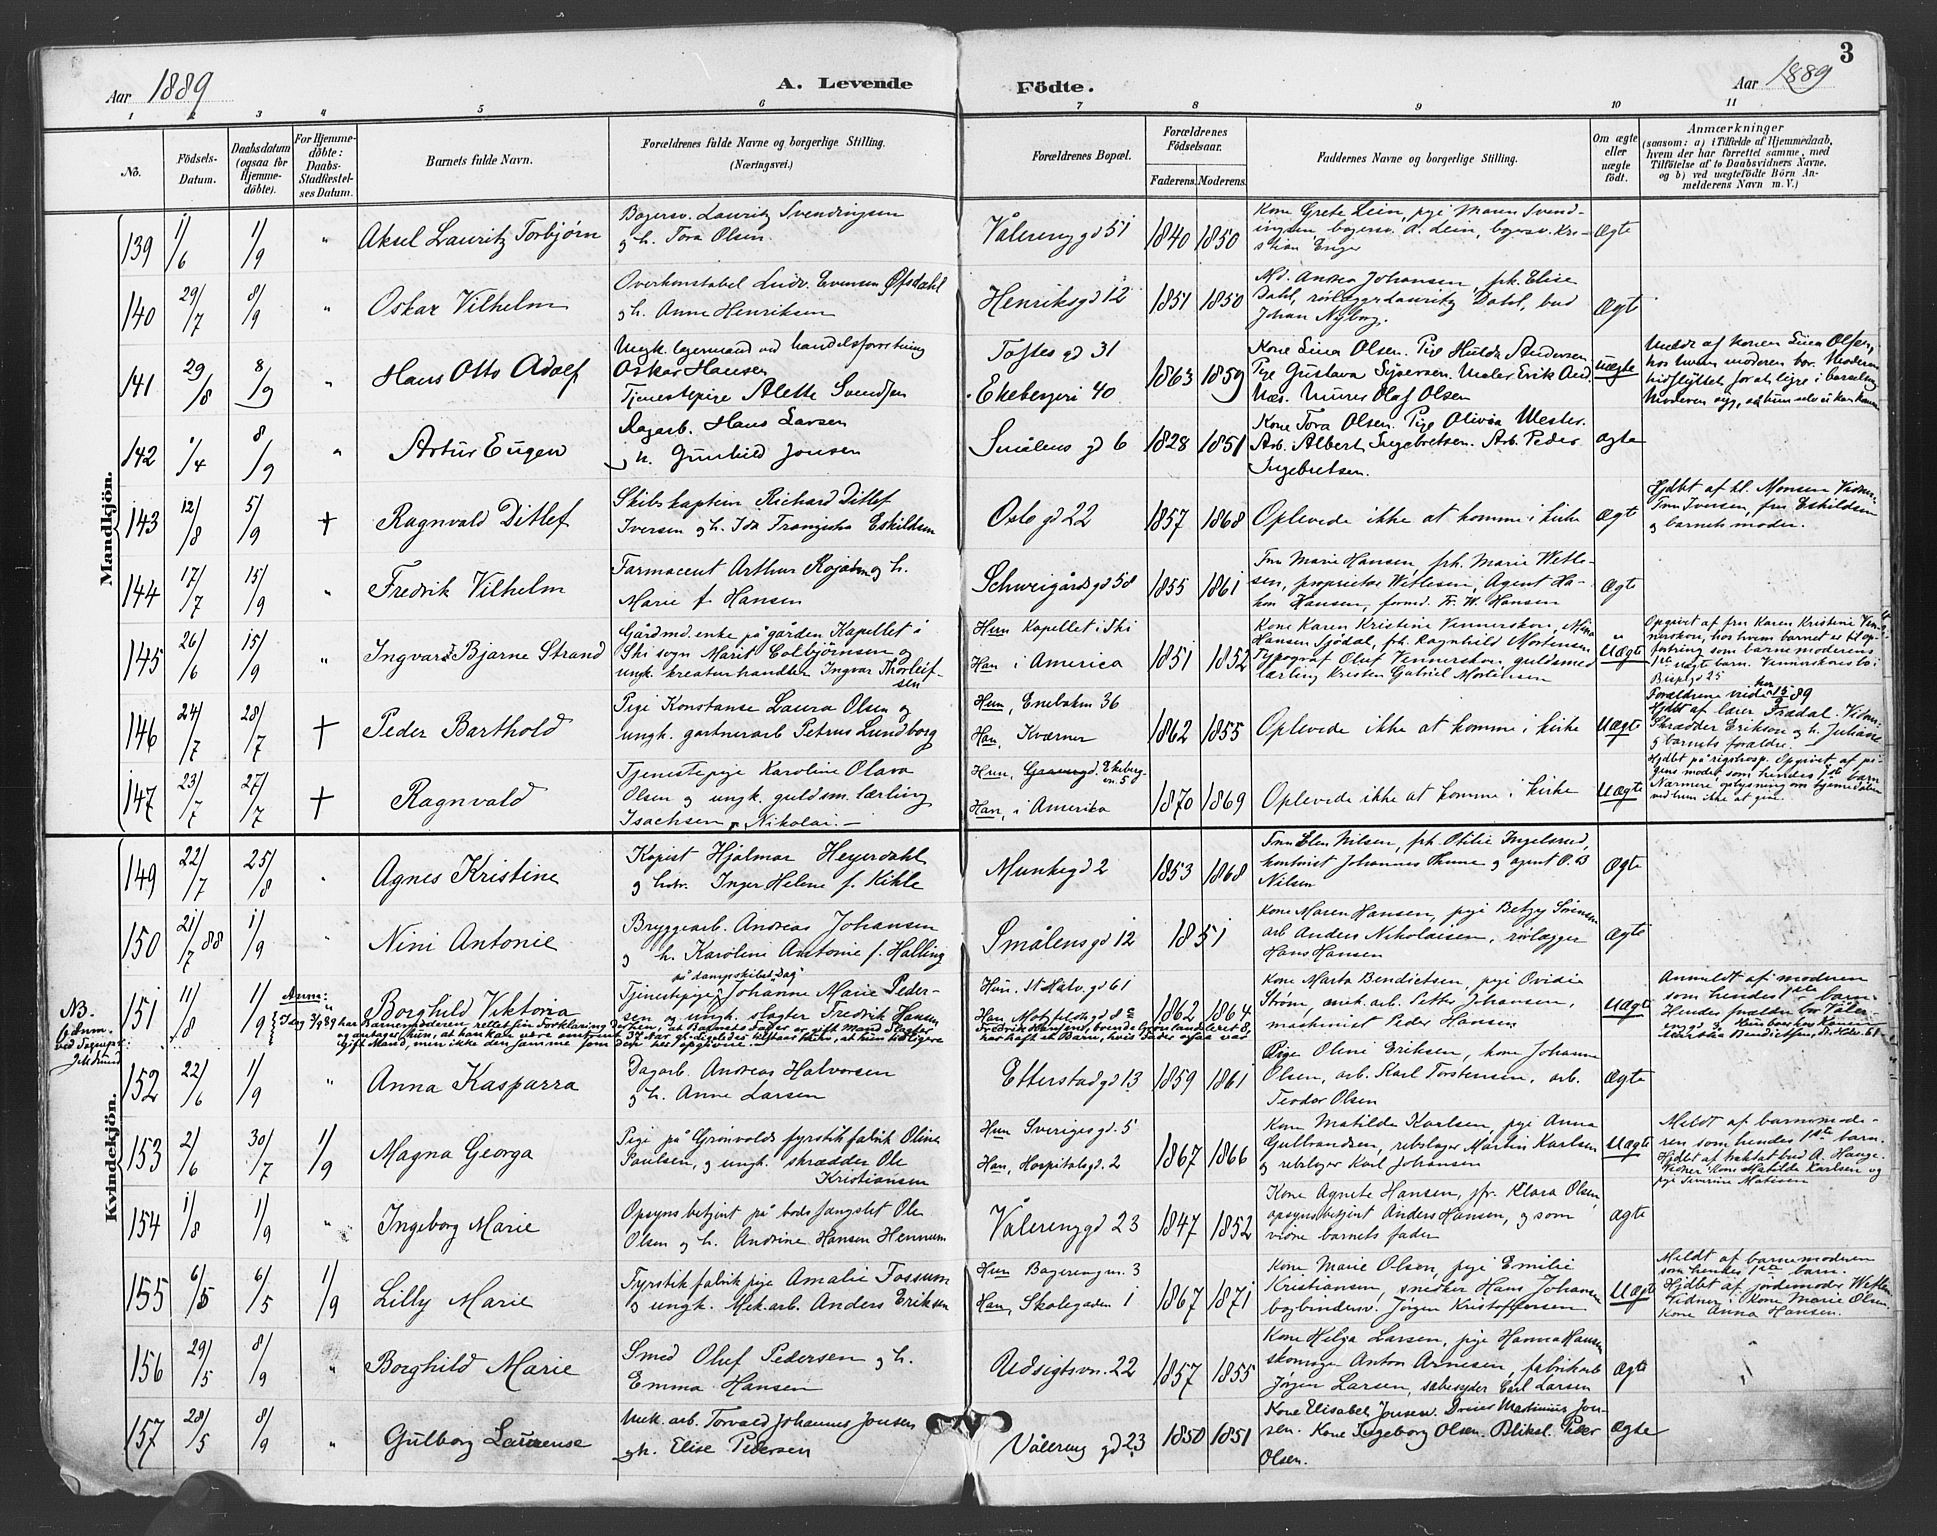 3
Aar 1889
A. Levende Födte.
Aar 1889
1 2 3 4 5 6 7 8 9 10 11
No.
Födsels-
Datum.
Daabsdatum
(ogsaa for
Hjemme-
döbte).
For Hjemme-
döbte:
Daabs-
Stadfæstel-
ses Datum.
Barnets fulde Navn.
Forældrenes fulde Navne og borgerlige Stilling.
(Næringsvei.)
Forældrenes Bopæl.
Forældrenes
Födselsaar.
Faderens. Moderens.
Faddernes Navne og borgerlige Stilling.
Om ægte
eller
uægte
födt.
Anmærkninger
(saasom: a) i Tilfælde af Hjemmedaab,
hvem der har forrettet samme, med
Tilföielse af to Daabsvidners Navne,
og b) ved uægtefödte Börn An-
melderens Navn m. V.)
Mandkjön.
139 1/6 1/9 " Aksel Lauritz Torbjørn
Bogersv. Lauritz Svendingsen
g h. Tora Olsen.
Vålerenggd 51 1840 1850
Kone Grete Lein, pige Maren Svend-
ingsen, bogersv. A. Lein, bogersv. Kri-
stian Enger
Ægte
140 29/7 8/9 " Oskar Vilhelm
Overkonstabel Ludv. Evensen Øfsdahl
g h. Anne Henriksen
Henriksgd 12 1851 1850
Md. Andrea Johansen, frk. Elise
Dahl, rørlægger Lauritz Dahl, bud
Johan Nyborg.
Ægte
141 29/8 8/9 " Hans Otto Adolf
Ungk. lagermand ved handelsforretning
Oskar Hansen
Tjenestepige Alette Svendsen
Toftes gd 31
Ekebergeri 40
1863 1859
Kone Lina Olsen. Pige Hulda Andersen
Pige Gustava Sypersen. Maler Erik And.
Næs. Murer Olaf Olsen
Uægte
Meldt af konen Lina Olsen,
hos hvem moderen bor. Moderen
hidflyttet for at ligge i barselseng
Moderen syg, så hun selv ei kan komme
142 1/4 8/9 " Artur Eugen
Dagarb. Hans Larsen
g h. Gunhild Jonsen
Smålens gd 6 1828 1851
Kone Tora Olsen. Pige Olivia Wester.
Arb. Albert Ingebretsen. Arb. Peder
Ingebretsen.
Ægte
143 12/8 5/9 † Ragnvald Ditlef
Skibskaptein Richard Ditlef
Iversen g h. Ida Trangisha Eskildsen
Oslo gd 22 1857 1868
Oplevede ikke at komme i kirke
Ægte
Hjdbt af kl. Monsen Vidner:
Fru Iversen, fru Eskildsen
g barnets moder.
144 17/7 15/9 " Fredrik Vilhelm
Farmaceut Arthur Rojahn g h.
Marie f. Hansen
Schweigårdsgd 58 1855 1861
Fru Marie Hansen, frk. Marie Wetle-
sen, proprietær Wetlesen, Agent Ha-
kon Hansen, formd. Fr. W. Hansen
Ægte
145 26/6 15/9 " Ingvard Bjarne Strand
Gårdmd. enke på gården Kapellet i
Ski sogn Marit Colbjörnsen g
ungk. kreaturhandler Ingvar Thorleif-
sen
Hun Kapellet i Ski
Han i America
1851 1852
Kone Karen Kristine Vennerskov, Mina
Hansen Sjödal, frk. Ragnhild Mortensen
Typograf Oluf Vennerskov. guldsmed
lærling Kristen Gabriel Mortensen
Uægte
Opgivet af fru Karen Kristine Ven-
nerskov, hos hvem barnet er til op-
fostring som barnemoderens
1ste uægte barn. Vennerskovs bo i
Bispegd 25
146 24/7 28/7 † Peder Barthold
Pige Konstanse Laura Olsen g
ungk. gartnerarb Petrus Lundborg
Hun, Enebakvn 36
Han, Kværner
1862 1855
Oplevede ikke at komme i kirke
Uægte
Forældrene viede her 15/9 89
Hjdbt af lærer Frødal. Vidner:
Skrædder Erikson g h. Juliane
g barnets forældre.
147 23/7 27/7 † Ragnvald
Tjenestepige Karoline Olava
Olsen g ungk. guldsm. lærling
Isachsen, Nikolai. —
Hun, Grønnegd. Ekeberg-
vn. 5
Han, i Amerika
1870 1869
Oplevede ikke at komme i kirke
Uægte
Hjdbt på rigshosp. Opgivet af pi-
gens moder, som hendes 1ste barn
Nærmere oplysning om hjemmedåben
ved hun ikke at give.
Kvindekjön.
149 22/7 25/8 " Agnes Kristine
Kopist Hjalmar Heyerdahl
g hstr. Inger Helene f. Kihle
Munkegd 2 1853 1868
Fru Elen Nilsen, frk. Otilie Ingelsrud,
kontorist Johannes Thune g agent O. B
Nilsen
Ægte
150 21/7 88 1/9 " Nini Antonie
Bryggearb. Andreas Johansen
g h. Karoline Antonie f. Halling
Smålensgd 12 1851
Kone Maren Hansen, pige Betzy Sørensen
arb Anders Nikolaisen, rørlægger
Hans Hansen
Ægte
NB.
151 11/8 1/9 Anm: Borghild Viktoria
på dampskibet "Dag"
Tjenestepige Johanne Marie Peder-
sen g ungk. slagter Fredrik Hansen
Hun. St Halv. gd 61
Han Motzfeldtsgd 8 a
1862 1864
Kone Marta Bendictsen, pige Ovidia
Strøm, mek. arb. Petter Johansen,
maskinist Peder Hansen
Uægte
Anmeldt af moderen
som hendes 1ste barn
Hendes forældre bor Våler-
enggd 9. Hun bor hos konen
Marta Bendictsen, St. Halv. 61
I dag 3/9 89 har Barnemoderen rettet sin Forklaring derhen, at Barnets Fader er gift Mand Slagter
Fredrik Hansens, boende Grønlandsleret 8,
152 22/6 1/9 " Anna Kasparra
Dagarb. Andreas Halvorsen
g h. Anne Larsen
Etterstadgd 13 1859 1861
Pige Oline Eriksen, kone Johanne
Olsen, arb. Karl Torstensen, arb.
Teodor Olsen
Ægte
153 2/6 30/7 1/9 Magna Georga
Pige på Grønvolds fyrstikfabrik Oline
Paulsen, g ungk. skrædder Ole
Kristiansen
Hun Sverigesgd. 5
Han, Hospitalsgd. 2
1867 1866
Kone Matilde Karlsen, pige Anna
Gulbrandsen, rebslager Martin Karlsen
g rebslager Karl Johansen
Uægte
Meldt af barnemode-
ren som hendes 1ste barn.
Hjdbt af traktatbud A. Hauge.
Vidner: Kone Matilde Karlsen og
pige Severine Matisen
154 1/8 1/9 " Ingeborg Marie
Opsynsbetjent på bodsfængslet Ole
Olsen g h. Andrine Hansen Hennum
Vålerenggd 23 1847 1852
Kone Agnete Hansen, fr. Klara Olsen,
opsynsbetjent Anders Hansen, g som
vidne barnets fader
Ægte
155 6/5 6/5 1/9 Lilly Marie
Fyrstikfabrik pige Amalie Fossum
g ungk. Mek. arb. Anders Eriksen
Hun Bogerengvn. 3
Han, Skolegaden 1
1867 1871
Kone Marie Olsen, pige Emilie
Kristiansen, snedker Hans Johansen
bogbindersv. Jørgen Kristoffersen
Uægte
Meldt af barnemoderen
som hendes 1ste barn.
Hjdbt af jordemoder Wetlen.
Vidner: kone Marie Olsen.
Kone Anna Hansen.
156 29/5 8/9 " Borghild Marie
Smed Oluf Pedersen g h.
Emma Hansen
Udsigtsvn. 22 1857 1855
Kone Helga Larsen, pige Hanna Hansen
skomager Anton Arnesen, fabrikarb
Jørgen Larsen, sæbesyder Carl Larsen
Ægte
157 28/5 8/9 " Gulborg Laurense
Mek. arb. Torvald Johannes Jonsen
g h. Elise Pedersen
Vålereng gd 23 1850 1851
Kone Elisabet Jonsen. Dreier Martinius Jon-
sen. Kone Ingeborg Olsen. Bliksl. Peder
Olsen.
Ægte